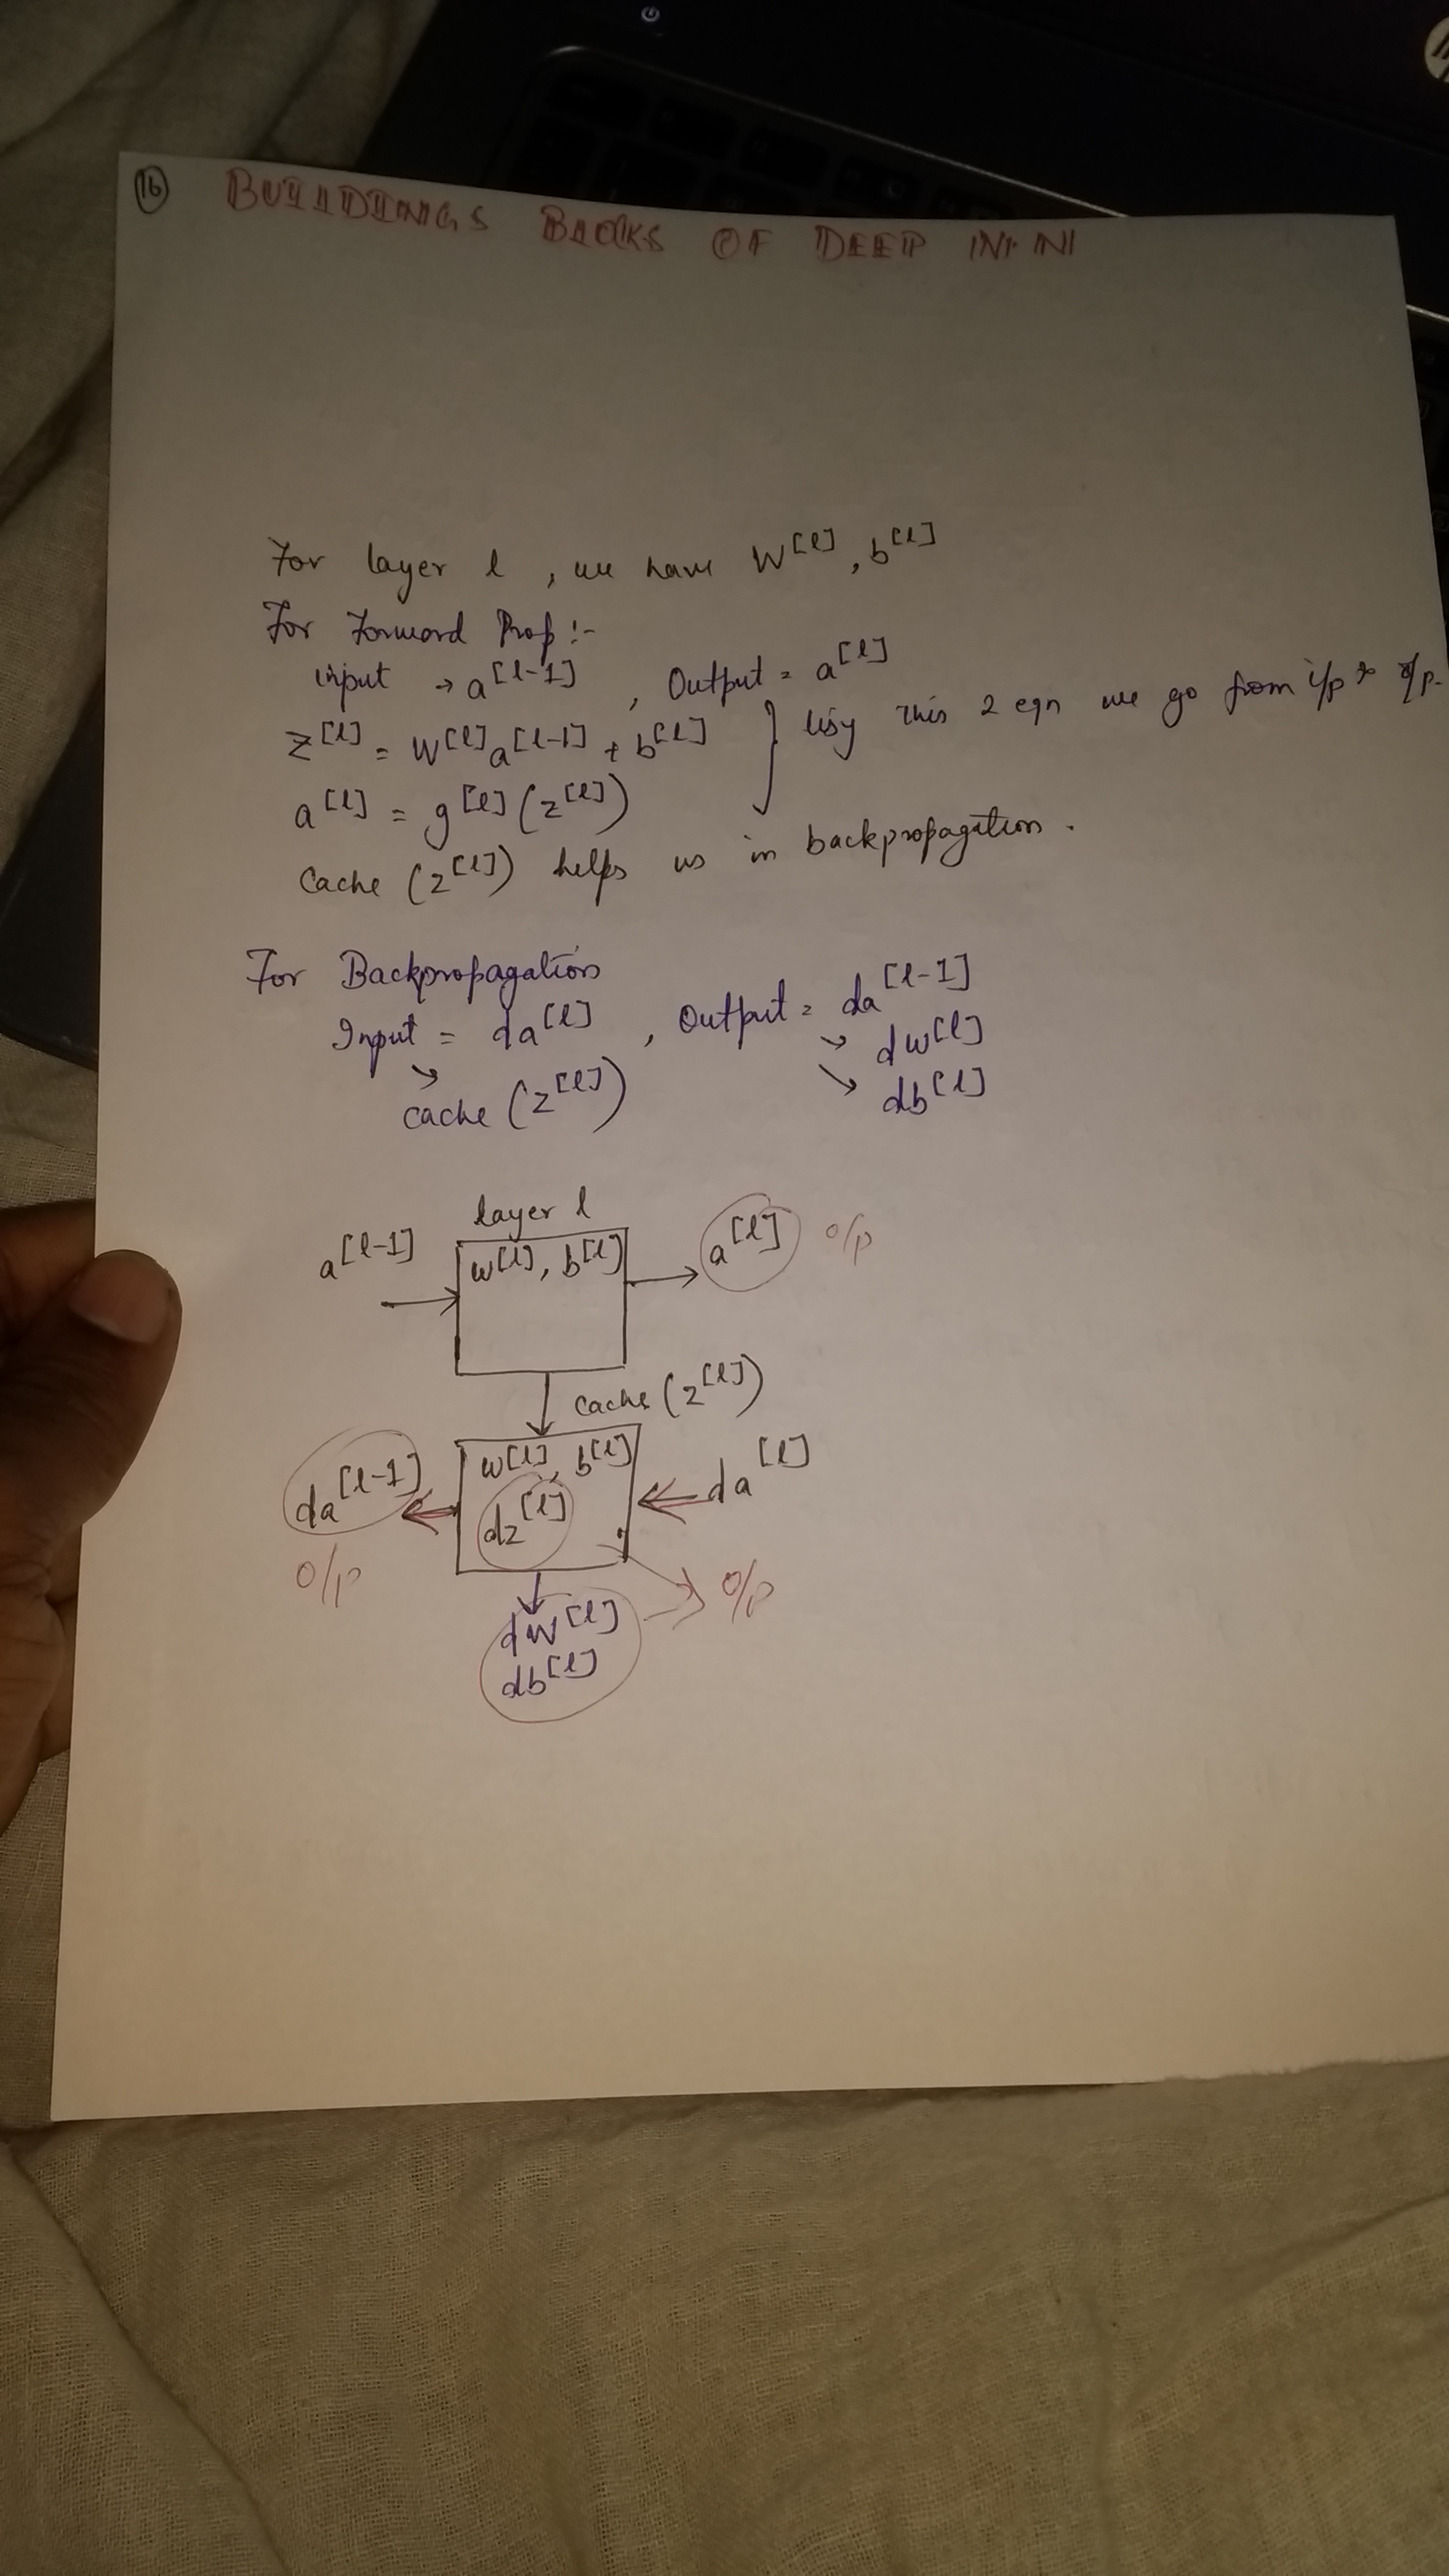 16 BUILDINGS BLOCKS OF DEEP N.N
For layer l , we have W[l], b[l]
For Forward Prop :-
input → a[l-1] , Output = a[l]
z[l] = W[l]a[l-1] + b[l] } Usig this 2 eqn we go from i/p to o/p.
a[l] = g[l](z[l])
Cache (z[l]) helps us in backpropagation .
For Backpropagation
Input = da[l] , Output = da[l-1]
↘ cache (z[l]) ↘ dw[l]
↘ db[l]
layer l
a[l-1] → w[l], b[l] → a[l] o/p
Cache (z[l])
da[l-1] ← w[l], b[l] ← da[l]
dz[l]
o/p → o/p
dW[l]
db[l]